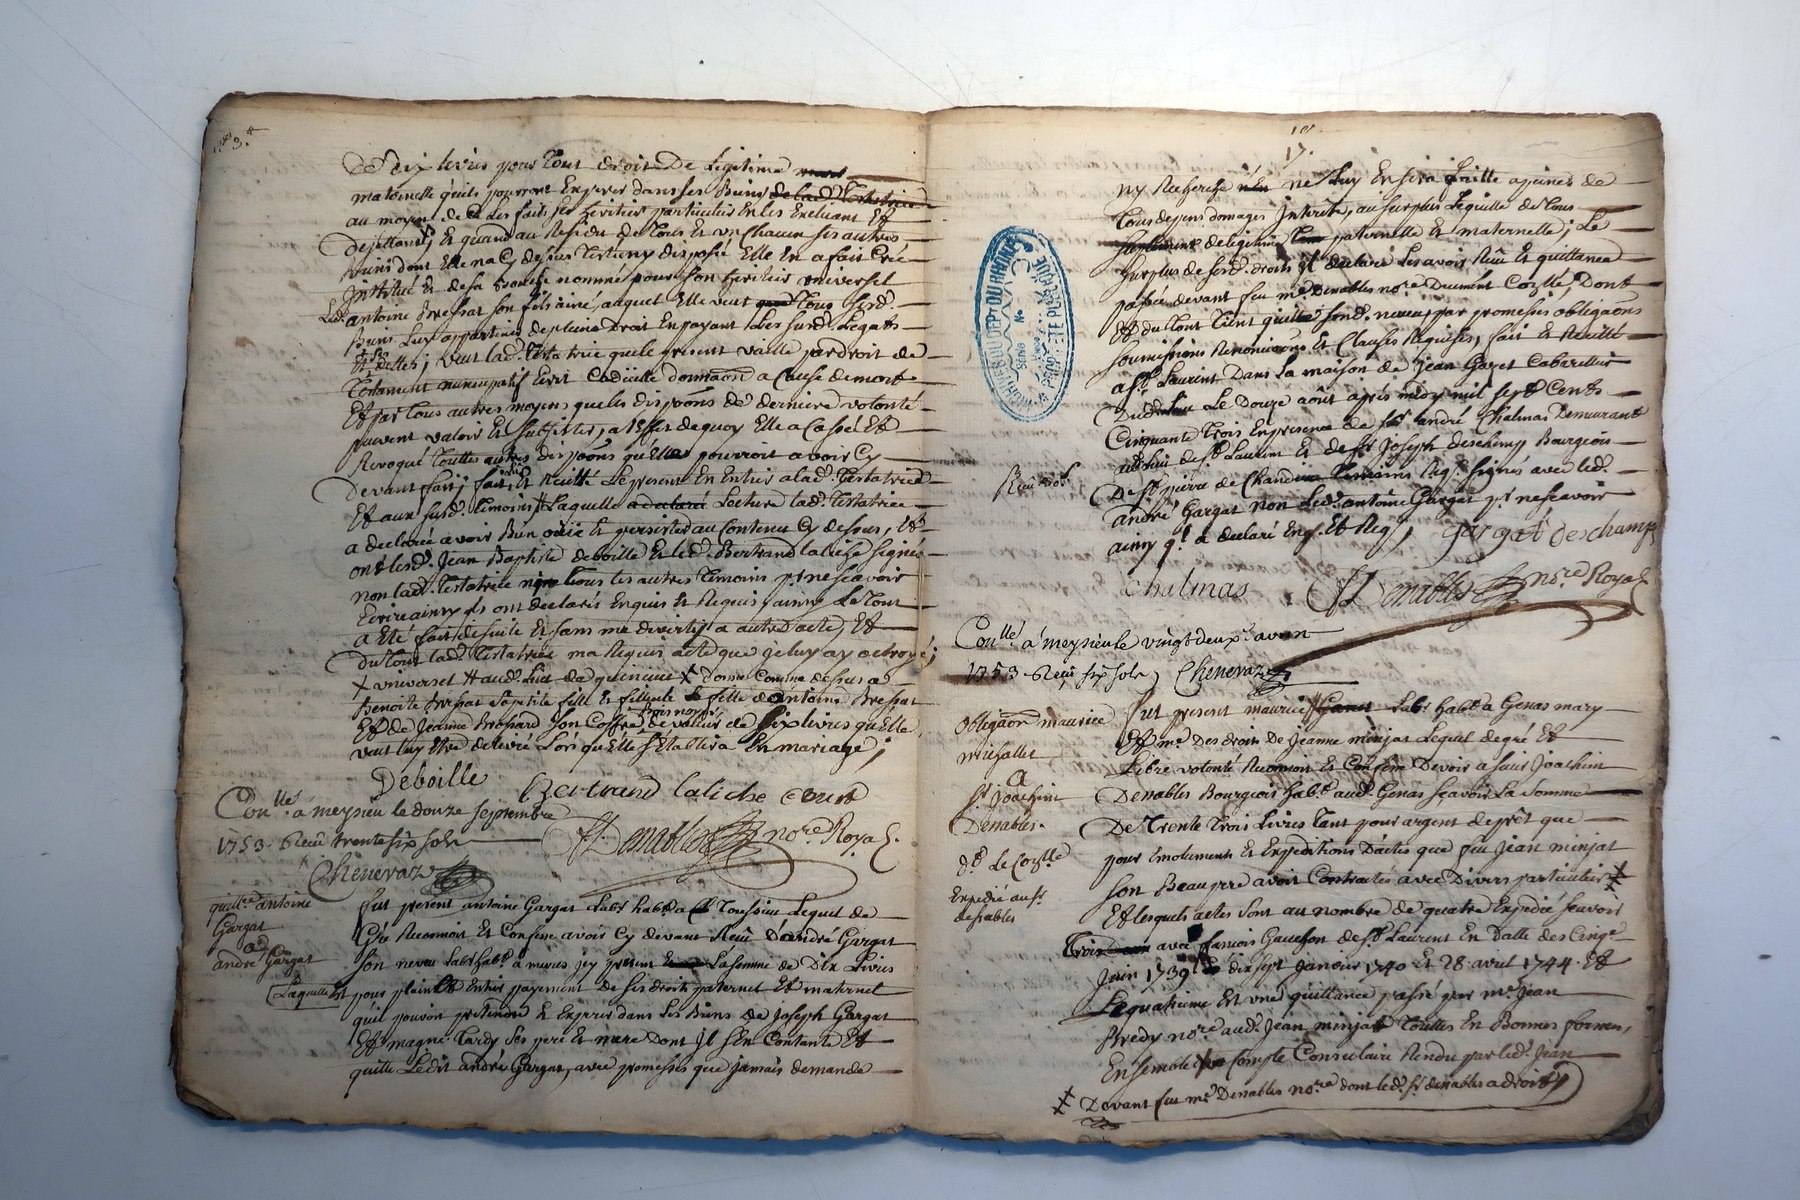 De dix livres pour tout droit De Legitime
maternelle quils pourront Esperer dans ses Biens de lad. Testatrice
au moyen de les faits ses heritiers particuliers En les Excluant Et
Dejettant, Et quand au Residu de tous Et un Chacun ses autres
Biens dont Elle na Cy dessus Testé ny disposé Elle En a fait Créé
Institué Et de sa Bouche nommé pour son heritier universel
Led. antoine Bressat son fils ainé, auquel Elle veut que Tous sesd.
Biens Luy appartiennent de plein Droit En payant Les susd. Legats
Et ses dettes; veut lad. Testatrice que le present vaille par droit de
Testament nuncupatif Ecrit Codicille donnaon a Cause de mort
Et par tous autres moyens que les dispoons de derniere volonté
peuvent valoir Et subsister, a l'effet de quoy Elle a Cassé Et
Revoqué Touttes autres dispoons qu'Elle pourroit avoir Cy
Devant fait; fait, Et Recitté Le present En Entier a lad. Testatrice
Et aux susd. temoins Laquelle a declaré Lecture lad. Testatrice
a declaré avoir Bien oüie Et persisté au Contenu Cy dessus, Et
ont lesd. Jean Baptiste deboille Et led. Bertrand laliche signés
non lad. Testatrice ny Tous les autres Temoins pr ne scavoir
Ecrire ainsy qls ont declarés Enquis Et Requis, ainsy Le Tout
a Eté fait de suite Et sans me divertir a autre acte, Et
Du tout lad. Testatrice ma Requis acte que je luy ay octroyé;
X universel # aud.
Benoite Bressat sa petite fille Et fillieule fille d'antoine Bressat
Et de Jeanne Brossard son Coffre Bois noyer de valleur de six livres qu'Elle
veut luy Etre delivré Lors qu'Elle s'Etablira En mariage;
Deboille Bertrand laliche
Coullé a meysieu le douze septembre
1753. Receu trente six sols
Denables nore Royal.
Chenevaz
quittce antoine
Gargat
a
andré Gargat
Laquelle Est
fut present antoine Gargat Labr habt a Toussieu Lequel de
Gré Reconnoit Et Confesse avoir Cy devant Receu D'andré Gargat
Son neveu Labr habt a mures icy present La somme de Dix Livres
pour plein Et Entier payement de ses droits paternel Et maternel
quil pouvoit pretendre Et Experer dans Les Biens de Joseph Gargat
Et magne Tardy ses pere Et mere Dont Il sEn Contante Et
quitte Le dit andré Gargat, avec promesses que Jamais demande
17.
ny Recherche ne Luy En sera faitte a peines de
Tous depens domages Interets, au surplus Lequitte de tous
de legitime paternelle Et maternelle, Le
surplus de sesd. droits Il declare Les avoir Reüs Et quittancé
passée devant feu me Denables nore Deument Cozllé, Dont
Et du tout Tient quitte sond. neveu par promesses obligaons
soumissions Renonciaons Et Clauses Requises, fait Et Recitté
a St. Laurent Dans La maison de Jean Gayet Cabarettier
Dud. Lieu Le Douze aôut apres midy mil sept Cents
Cinquante Trois En presence de sr andré Chalmas Demeurant
aud. St. Laurent Et de sr Joseph deschamp Bourgeois
De St. pierre de Chandieu Temoins Req. signés avec led.
andré Gargat non Led. antoine Gargat pr ne scavoir
ainsy ql a declaré Enq. Et Req;
Gargat deschamps
Chalmas Denables nore Royal
Coullé a meysieu le vingt deuxe
1753 Receu six sols, Chenevaz
Obligaon maurice
a
sr Joachim
Denables.
de Le Cozlle
Expedié aud. sr
denables
fut present maurice Labr habt a Genas mary
Et me Des droits De Jeanne minjat Lequel de gré Et
Libre volonté Reconnoit Et Confesse Devoir a sieur Joachim
Denables Bourgeois habt aud. Genas scavoir La somme
De Trente Trois Livres Tant pour argent de prêt que
pour Emoluments Et Expeditions D'actes que feu Jean minjat
son Beaupere avoit Contractés avec Divers particuliers #
Et lesquels actes sont au nombre de quatre Expedié scavoir
Trois avec francois Gauchon de St. Laurent En Datte des Cinqe
Juin 1739. dix sept Janvier 1740 Et 28 avril 1744. Et
Le quatrieme Est une quittance passé par me Jean
Bredy nore aud. Jean minjat Touttes En Bonnes formes,
Ensemble Compte Consulaire Rendu par led. Jean
# Devant feu me Denables nore dont led. sr denables a droit